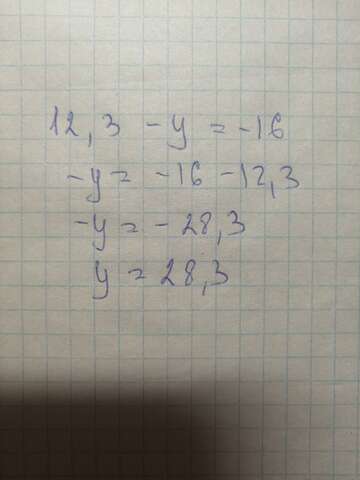 12,3 - y = -16
-y = -16 - 12,3
-y = - 28,3
y = 28,3